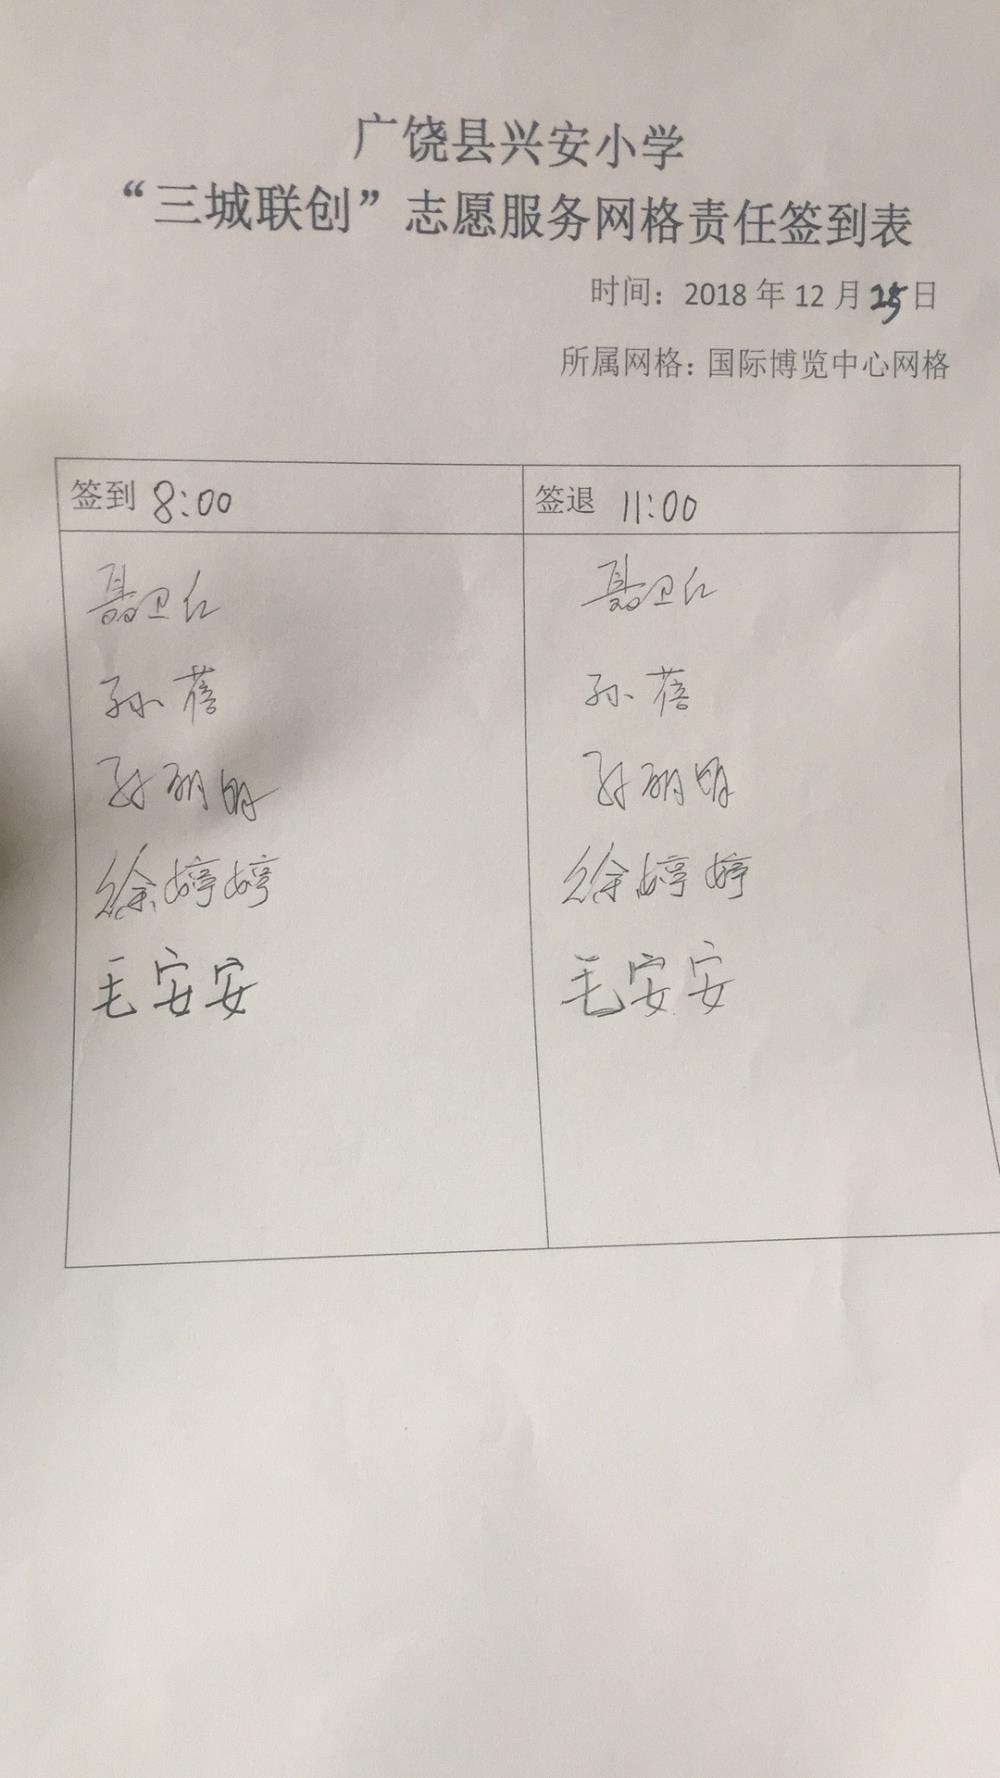 广饶县兴安小学
“三城联创”志愿服务网格责任签到表
时间：2018年12月25日
所属网格：国际博览中心网格
签到 8:00 签退 11:00
聂卫仁 聂卫仁
孙蓓 孙蓓
孙 明 孙 明
徐婷婷 徐婷婷
毛安安 毛安安